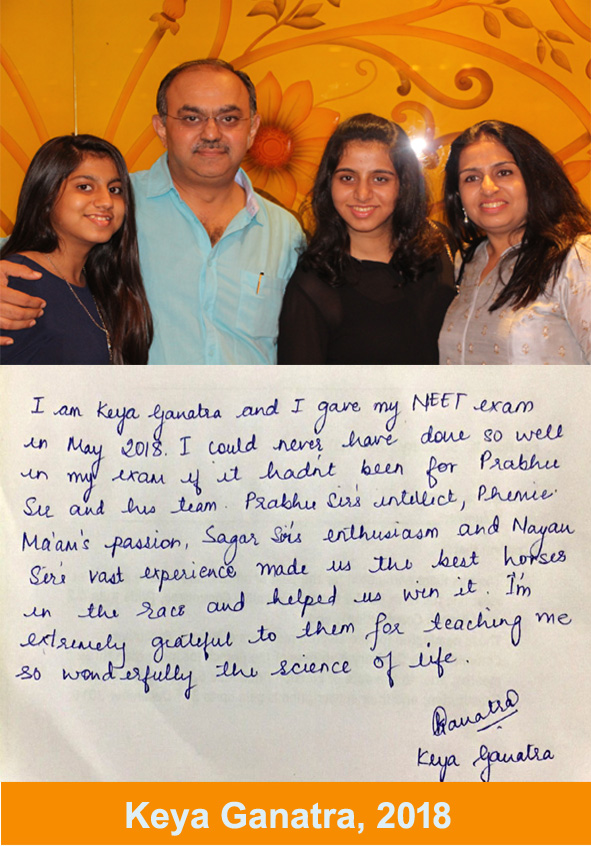 I am Keya Ganatra and I gave my NEET exam
in May 2018. I could never have done so well
in my exam if it hadn't been for Prabhu
Sir and his team. Prabhu Sir's intellect, Phemie
Ma'am's passion, Sagar Sir's enthusiasm and Nayan
Sir's vast experience made us the best horses
in the race and helped us win it. I'm
extremely grateful to them for teaching me
so wonderfully the science of life.
Ganatra
Keya Ganatra
Keya Ganatra, 2018